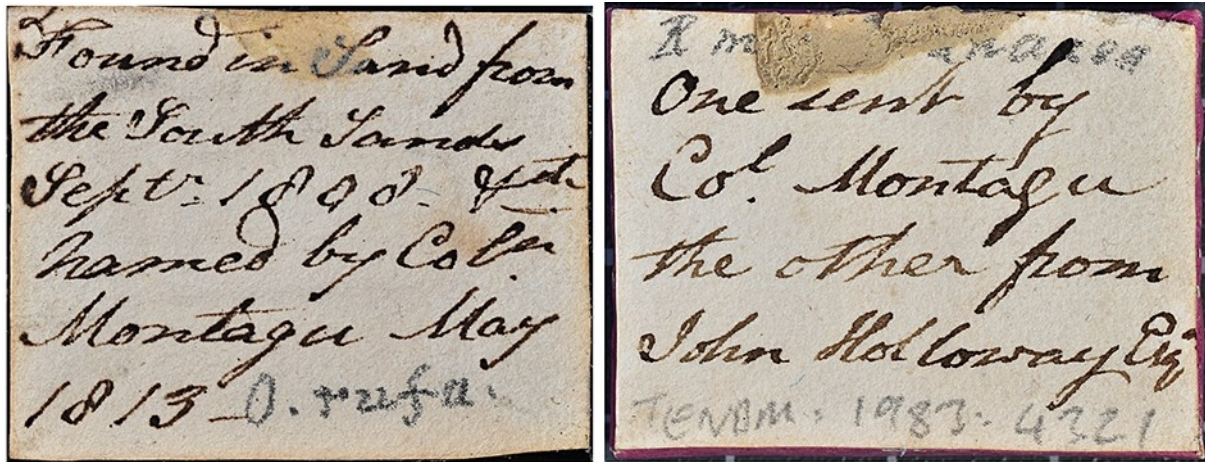 Found in Sand from
the South Sands
Septr. 1808. &
named by Coln.
Montagu May
1813 - O. rufa.
One sent by
Col. Montagu
the other from
John Holloway Esq
TENBM. 1983. 4321